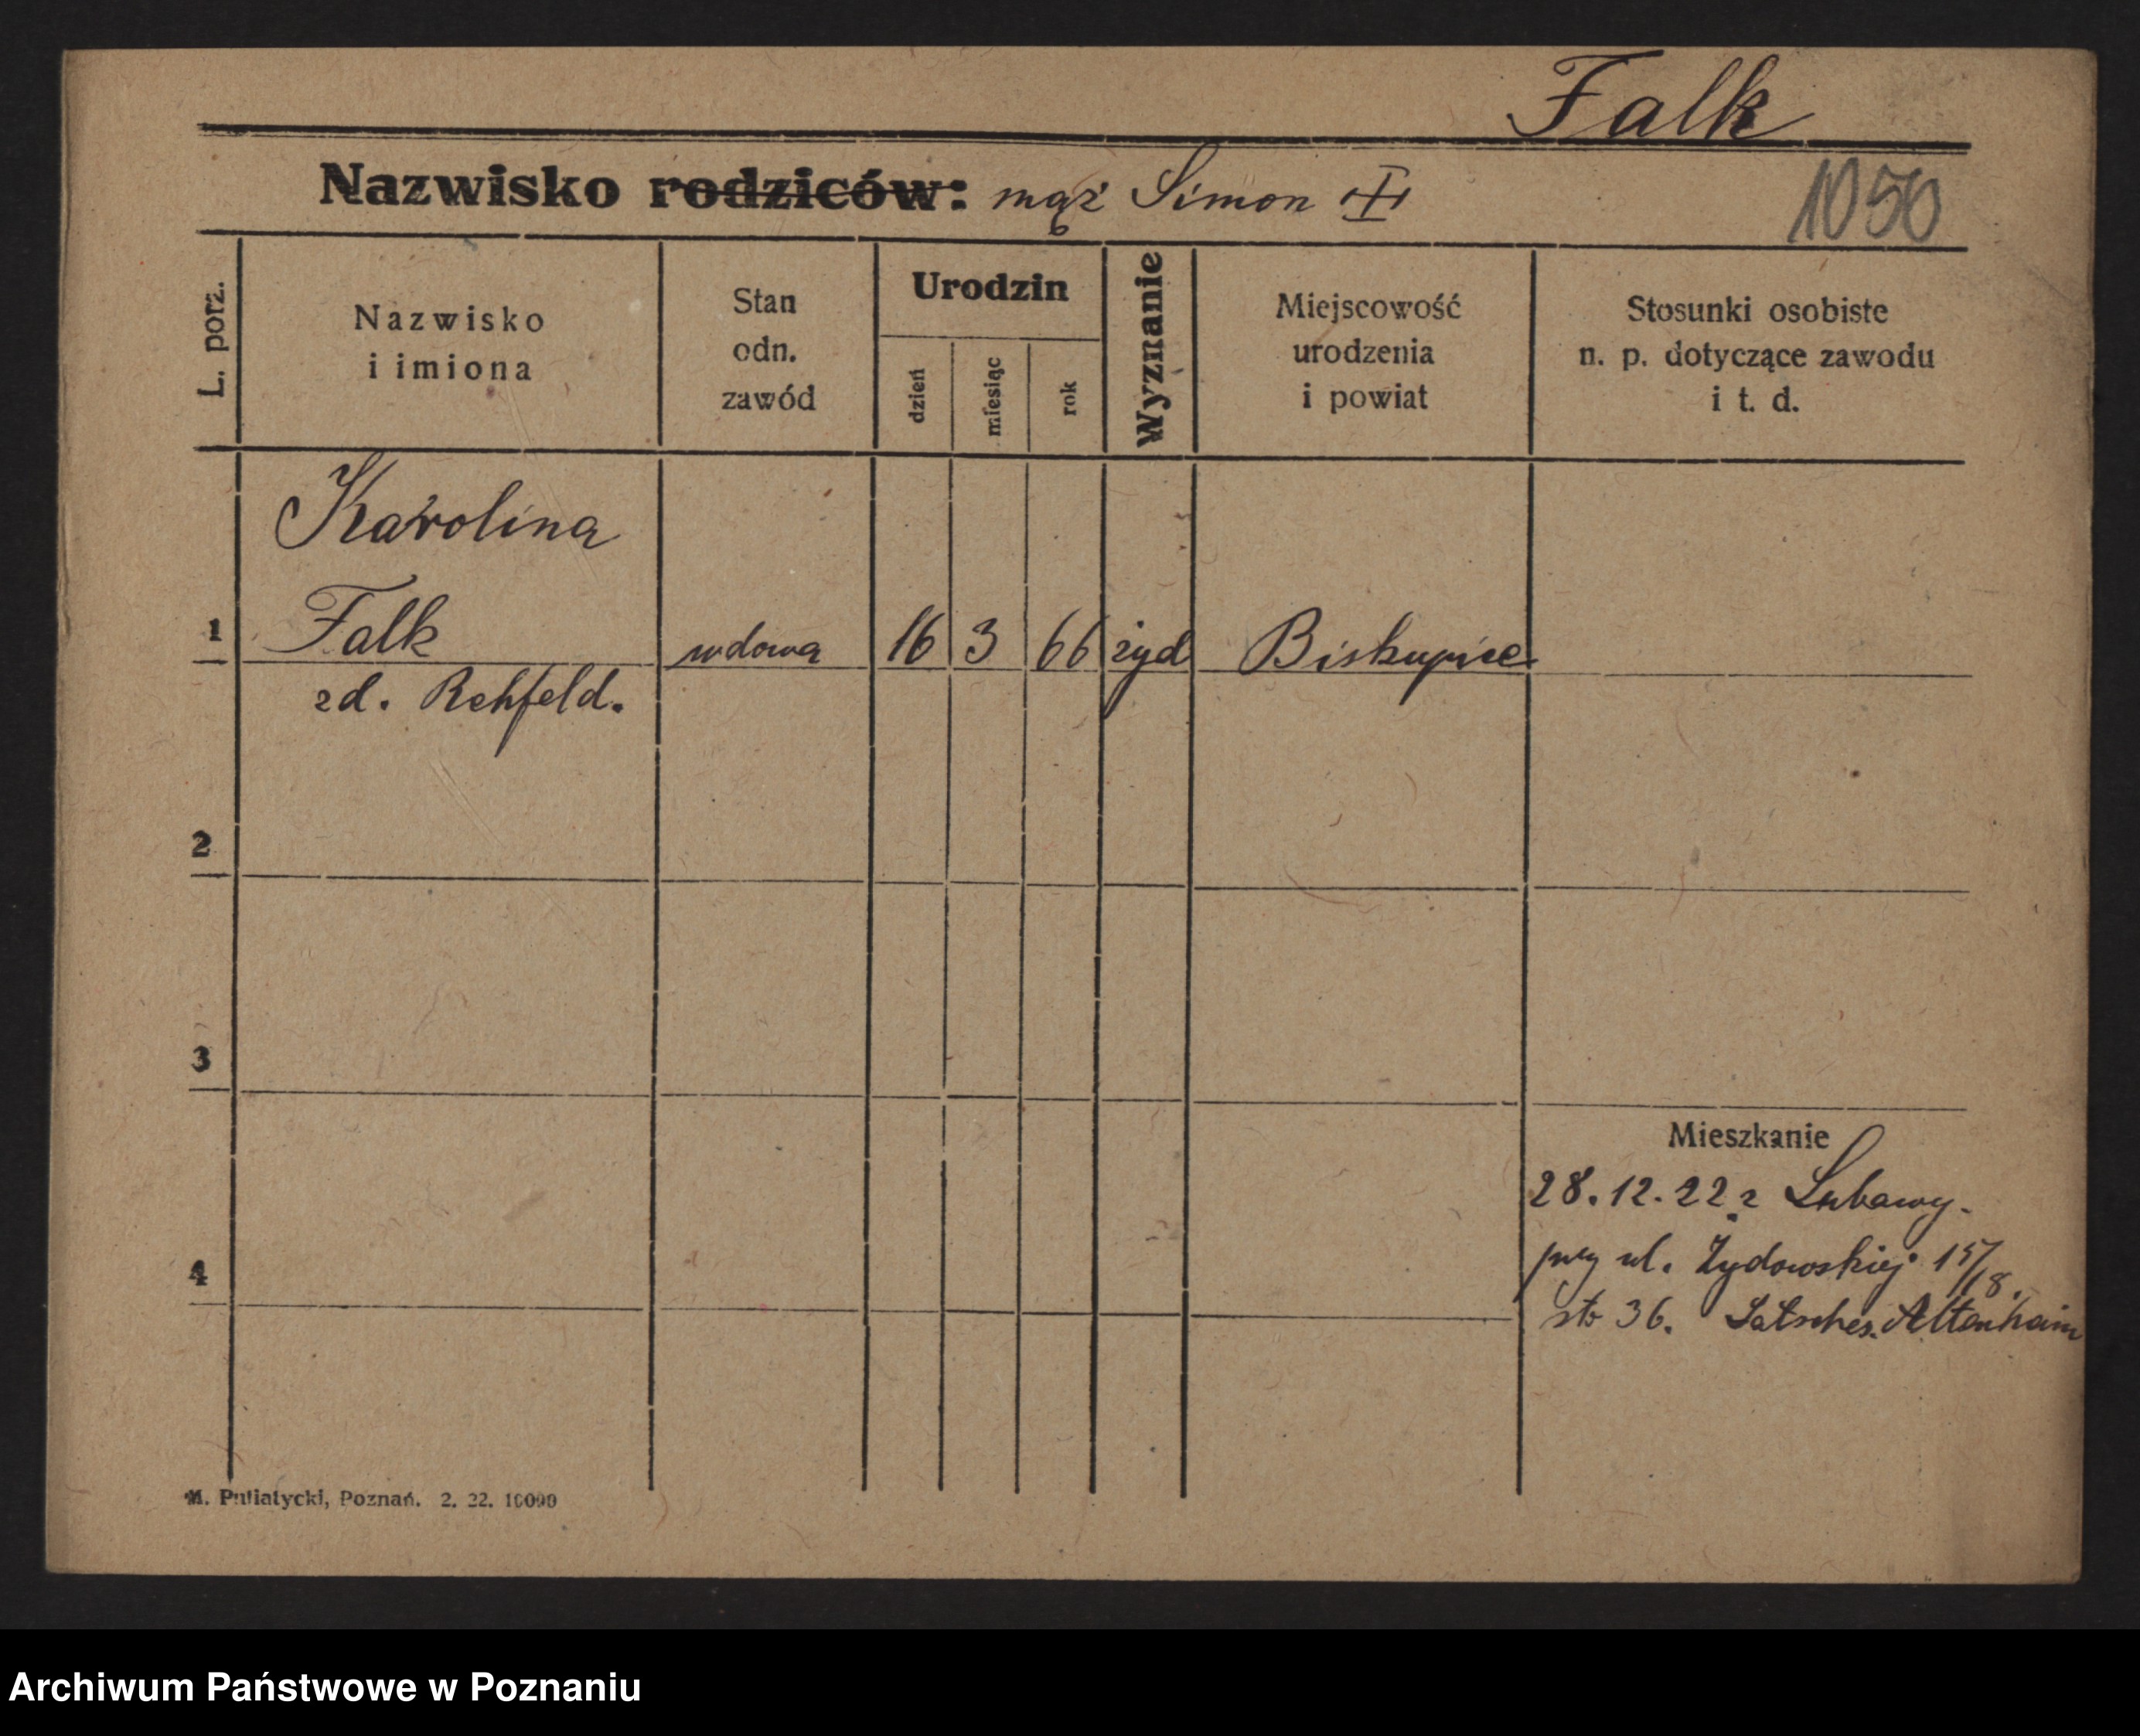 Falk
Nazwisko rodziców: mąż Simon
1050
L. porz.
Nazwisko
i imiona
Stan
odn.
zawód
Urodzin
dzień
miesiąc
rok
Wyznanie
Miejscowość
urodzenia
i powiat
Stosunki osobiste
n. p. dotyczące zawodu
i t. d.
Karolina
1 Falk wdowa 16 3 66 żyd Biskupice
zd. Rehfeld.
2
3
Mieszkanie
28.12.22 z Lubawy.
przy ul. Żydowskiej 15/18.
4
str 36. Altenheim
M. Putiatycki, Poznań. 2. 22. 10000
Archiwum Państwowe w Poznaniu